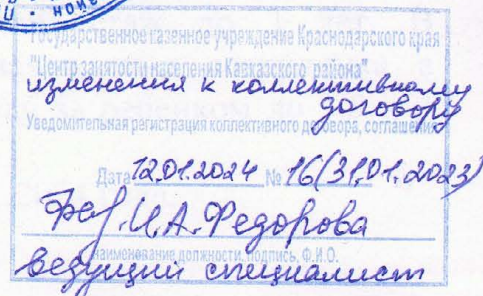 Государственное казенное учреждение Краснодарского края
"Центр занятости населения Кавказского района"
изменения к коллективному
договору
Уведомительная регистрация коллективного договора, соглашения
Дата 12.01.2024 № 16(31.01.2023)
И.А. Федорова
наименование должности, подпись, Ф.И.О.
ведущий специалист